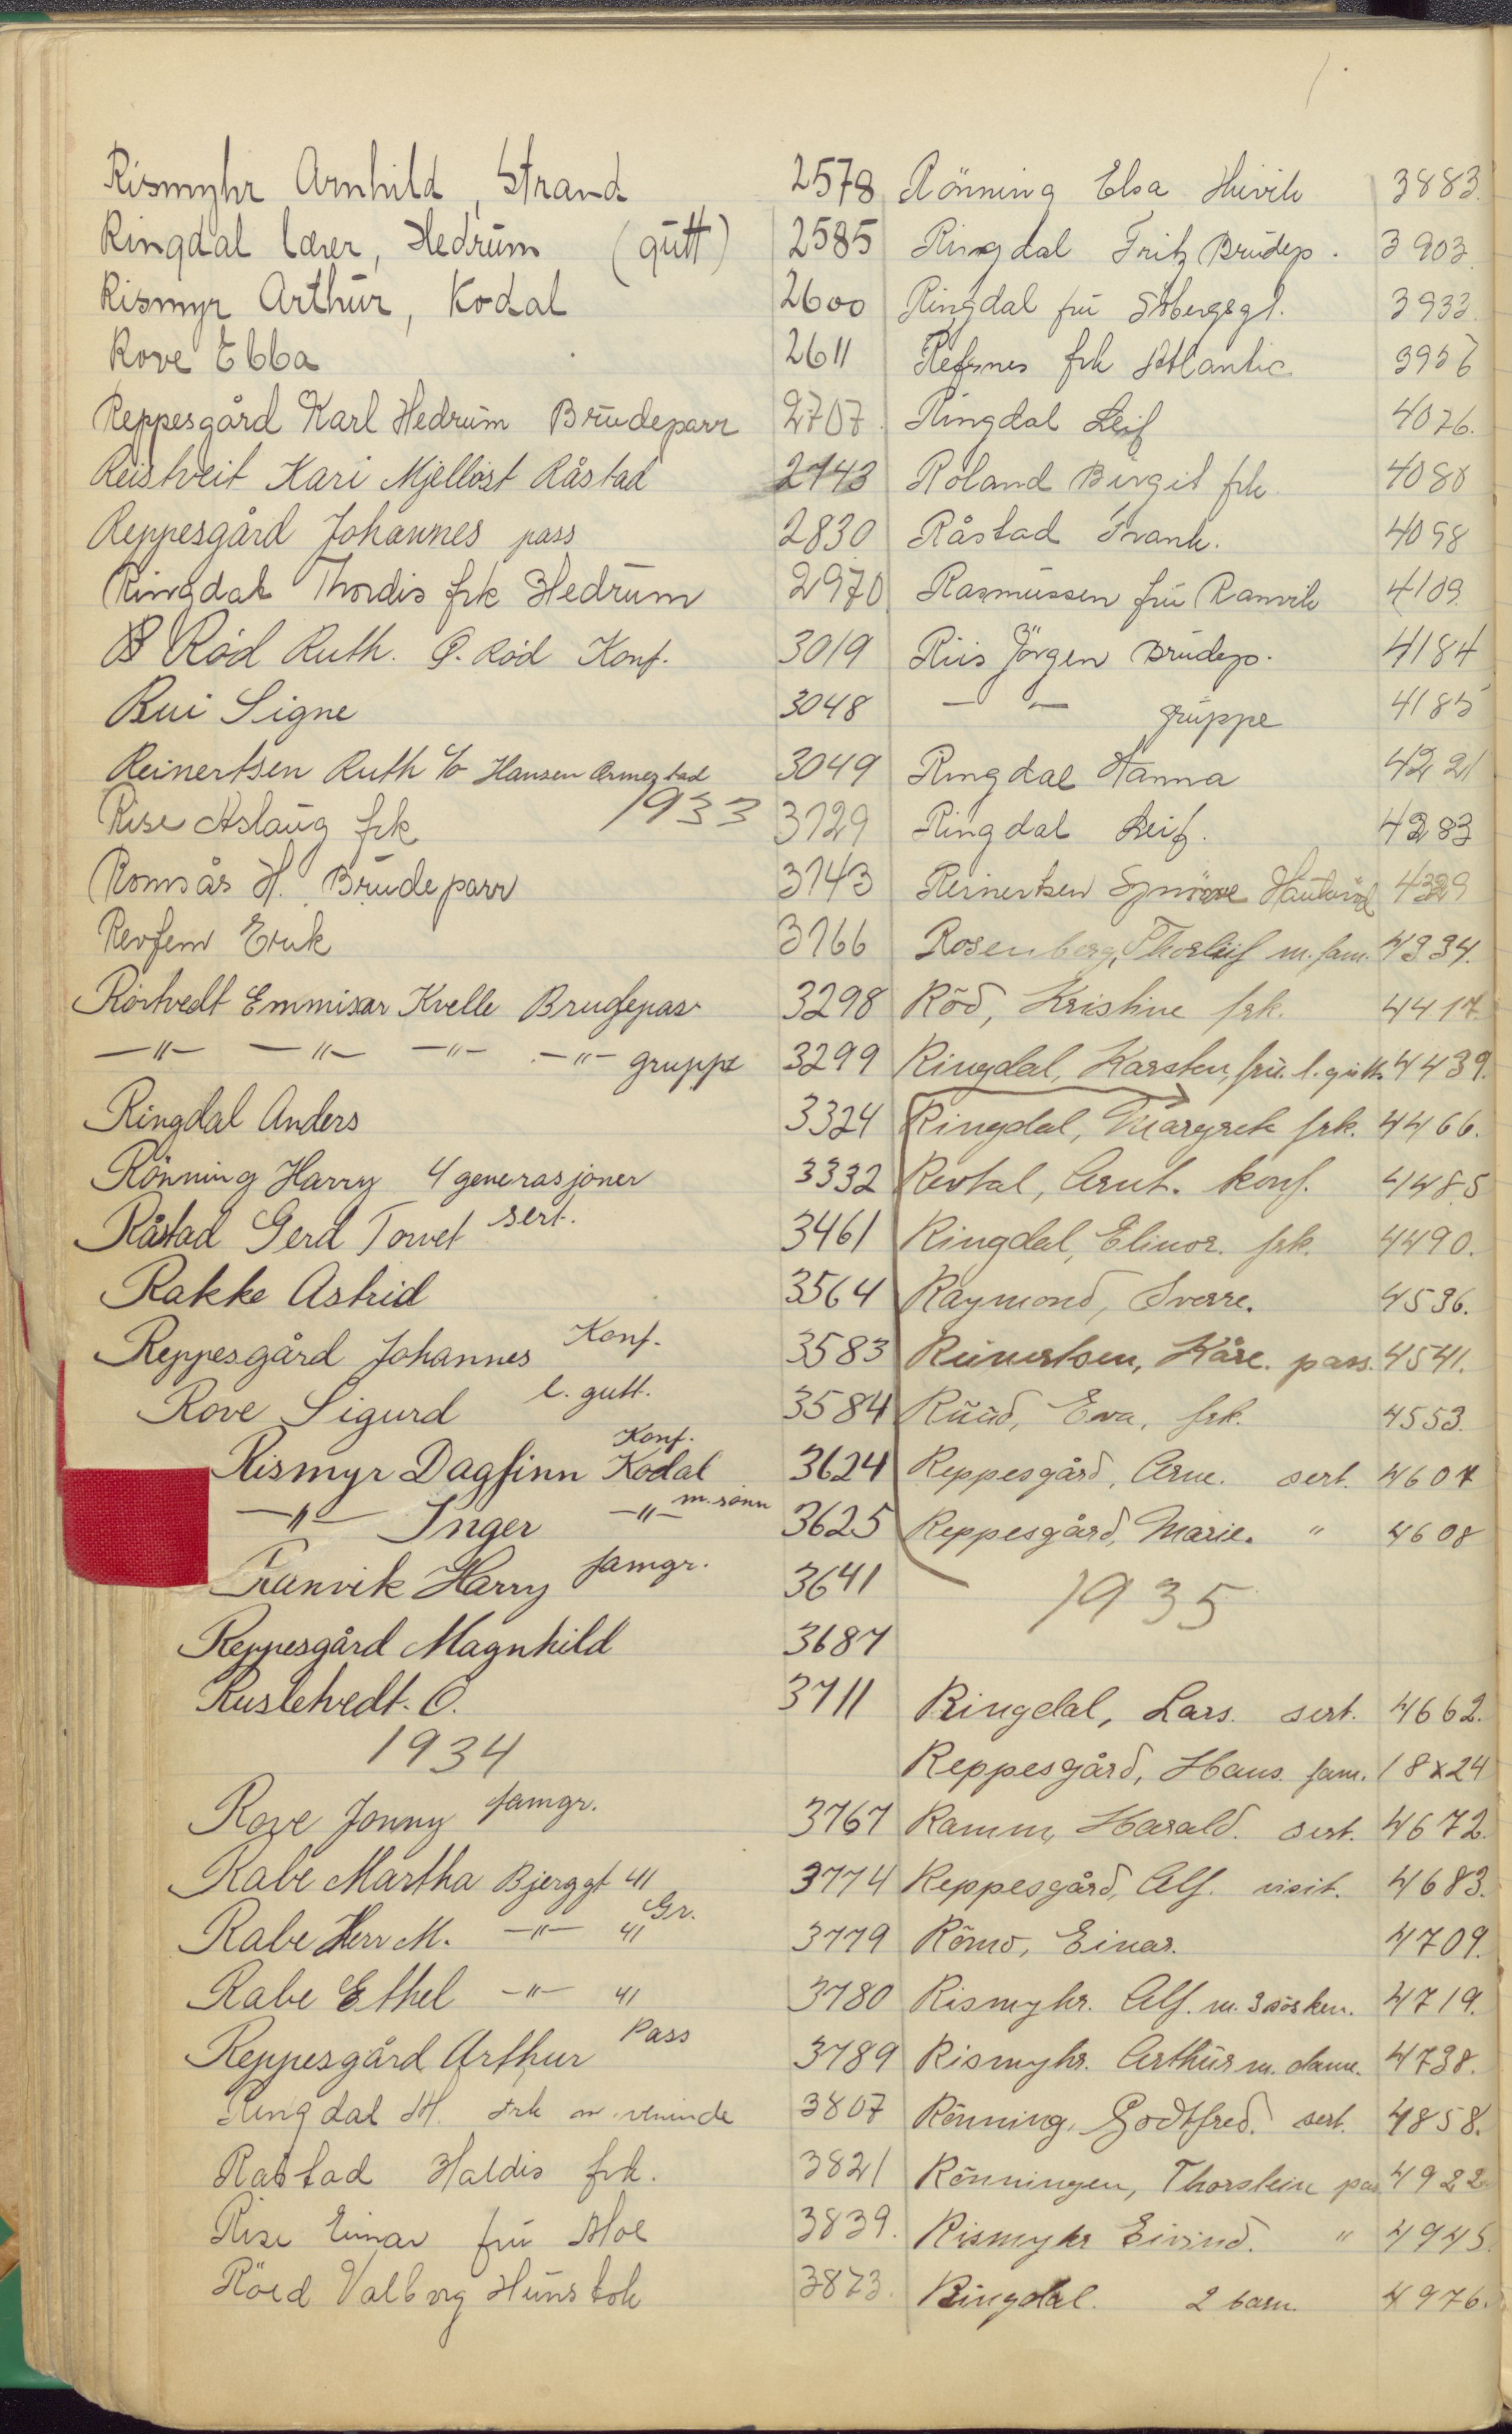 Rismyhr Arnhild, Strand 2578
Ringdal lærer, Hedrum (gutt) 2585
Rismyr Arthur, Kodal 2600
Rove Ebba 2611
Reppesgård Karl Hedrum Brudeparr 2707
Reistveit Kari Mjellöst Råstad 2743
Reppesgård Johannes pass 2830
Ringdal Thordis frk Hedrum 2970
Röd Ruth. O. Röd Konf. 3019
Rui Signe 3048
Reinertsen Ruth c/o Hansen 3049
1933
Rise Aslaug frk 3129
Romsås H. Brudeparr 3143
Revfem Eruk 3166
Rörtvedt Emmisær Kvelle Brudepar 3298
—"— —"— —"— —"— gruppe 3299
Ringdal Anders 3324
Rönning Harry 4 generasjoner 3332
Råstad Gerd Torvet sert. 3461
Rakke Astrid 3564
Reppesgård Johannes Konf. 3583
Rove Sigurd l. gutt. 3584
Rismyr Dagfinn Konf. Kodal 3624
—"— Inger —"— m. sönn 3625
Franvik Harry famgr. 3641
Reppesgård Magnhild 3687
Rustetvedt. O. 3711
1934
Rove Jonny famgr. 3767
Rabe Martha Bjerggt 41 3774
Rabe Herr M. —"— 41 Gr. 3779
Rabe Ethel —"— 41 3780
Reppesgård Arthur Pass 3789
Ringdal M. frk m veninde 3807
Råstad Haldis frk. 3821
Rise Einar fru Moe 3839.
Röed Valborg Hunstok 3873.
Rönning Elsa Huvik 3883.
Ringdal Fritz Brudep. 3903.
Ringdal fru Stbergsgt. 3933.
Refsnes frk Atlantic 3956
Ringdal Leif 4076.
Roland Birgit frk. 4080
Råstad Frank. 4098
Rasmussen fru Ranvik 4109
Riis Jörgen Brudep. 4184
— " — gruppe 4185
Ringdal Hanna 4221
Ringdal Leif. 4283
Reinertsen Synnöve 4329
Rosenberg, Thorleif m. fam. 4334.
Röd, Kristine frk. 4417.
Ringdal, Karsten, fru. l. gutt. 4439.
Ringdal, Margrete frk. 4466.
Revtal, Arnt. konf. 4485
Ringdal, Elinor. frk. 4490.
Raymond, Sverre. 4536.
Reinertsen, Kåre. pass. 4541.
Ruud, Eva, frk. 4553.
Reppesgård, Arne. sert. 4607
Reppesgård, Marie. " 4608
1935
Ringdal, Lars. sert. 4662.
Reppesgård, Hans. fam. 18x24
Ramm, Harald. sert. 4672.
Reppesgård, Alf. visit. 4683.
Römo, Einar. 4709.
Rismyhr. Alf. m. 3 sösken. 4719.
Rismyhr. Arthur m. dame. 4738.
Rönning, Godtfred. sert. 4858.
Rönningen, Thorstein pas 4922
Rismyhr Eivind. " 4945.
Ringdal. 2 barn. 4976.